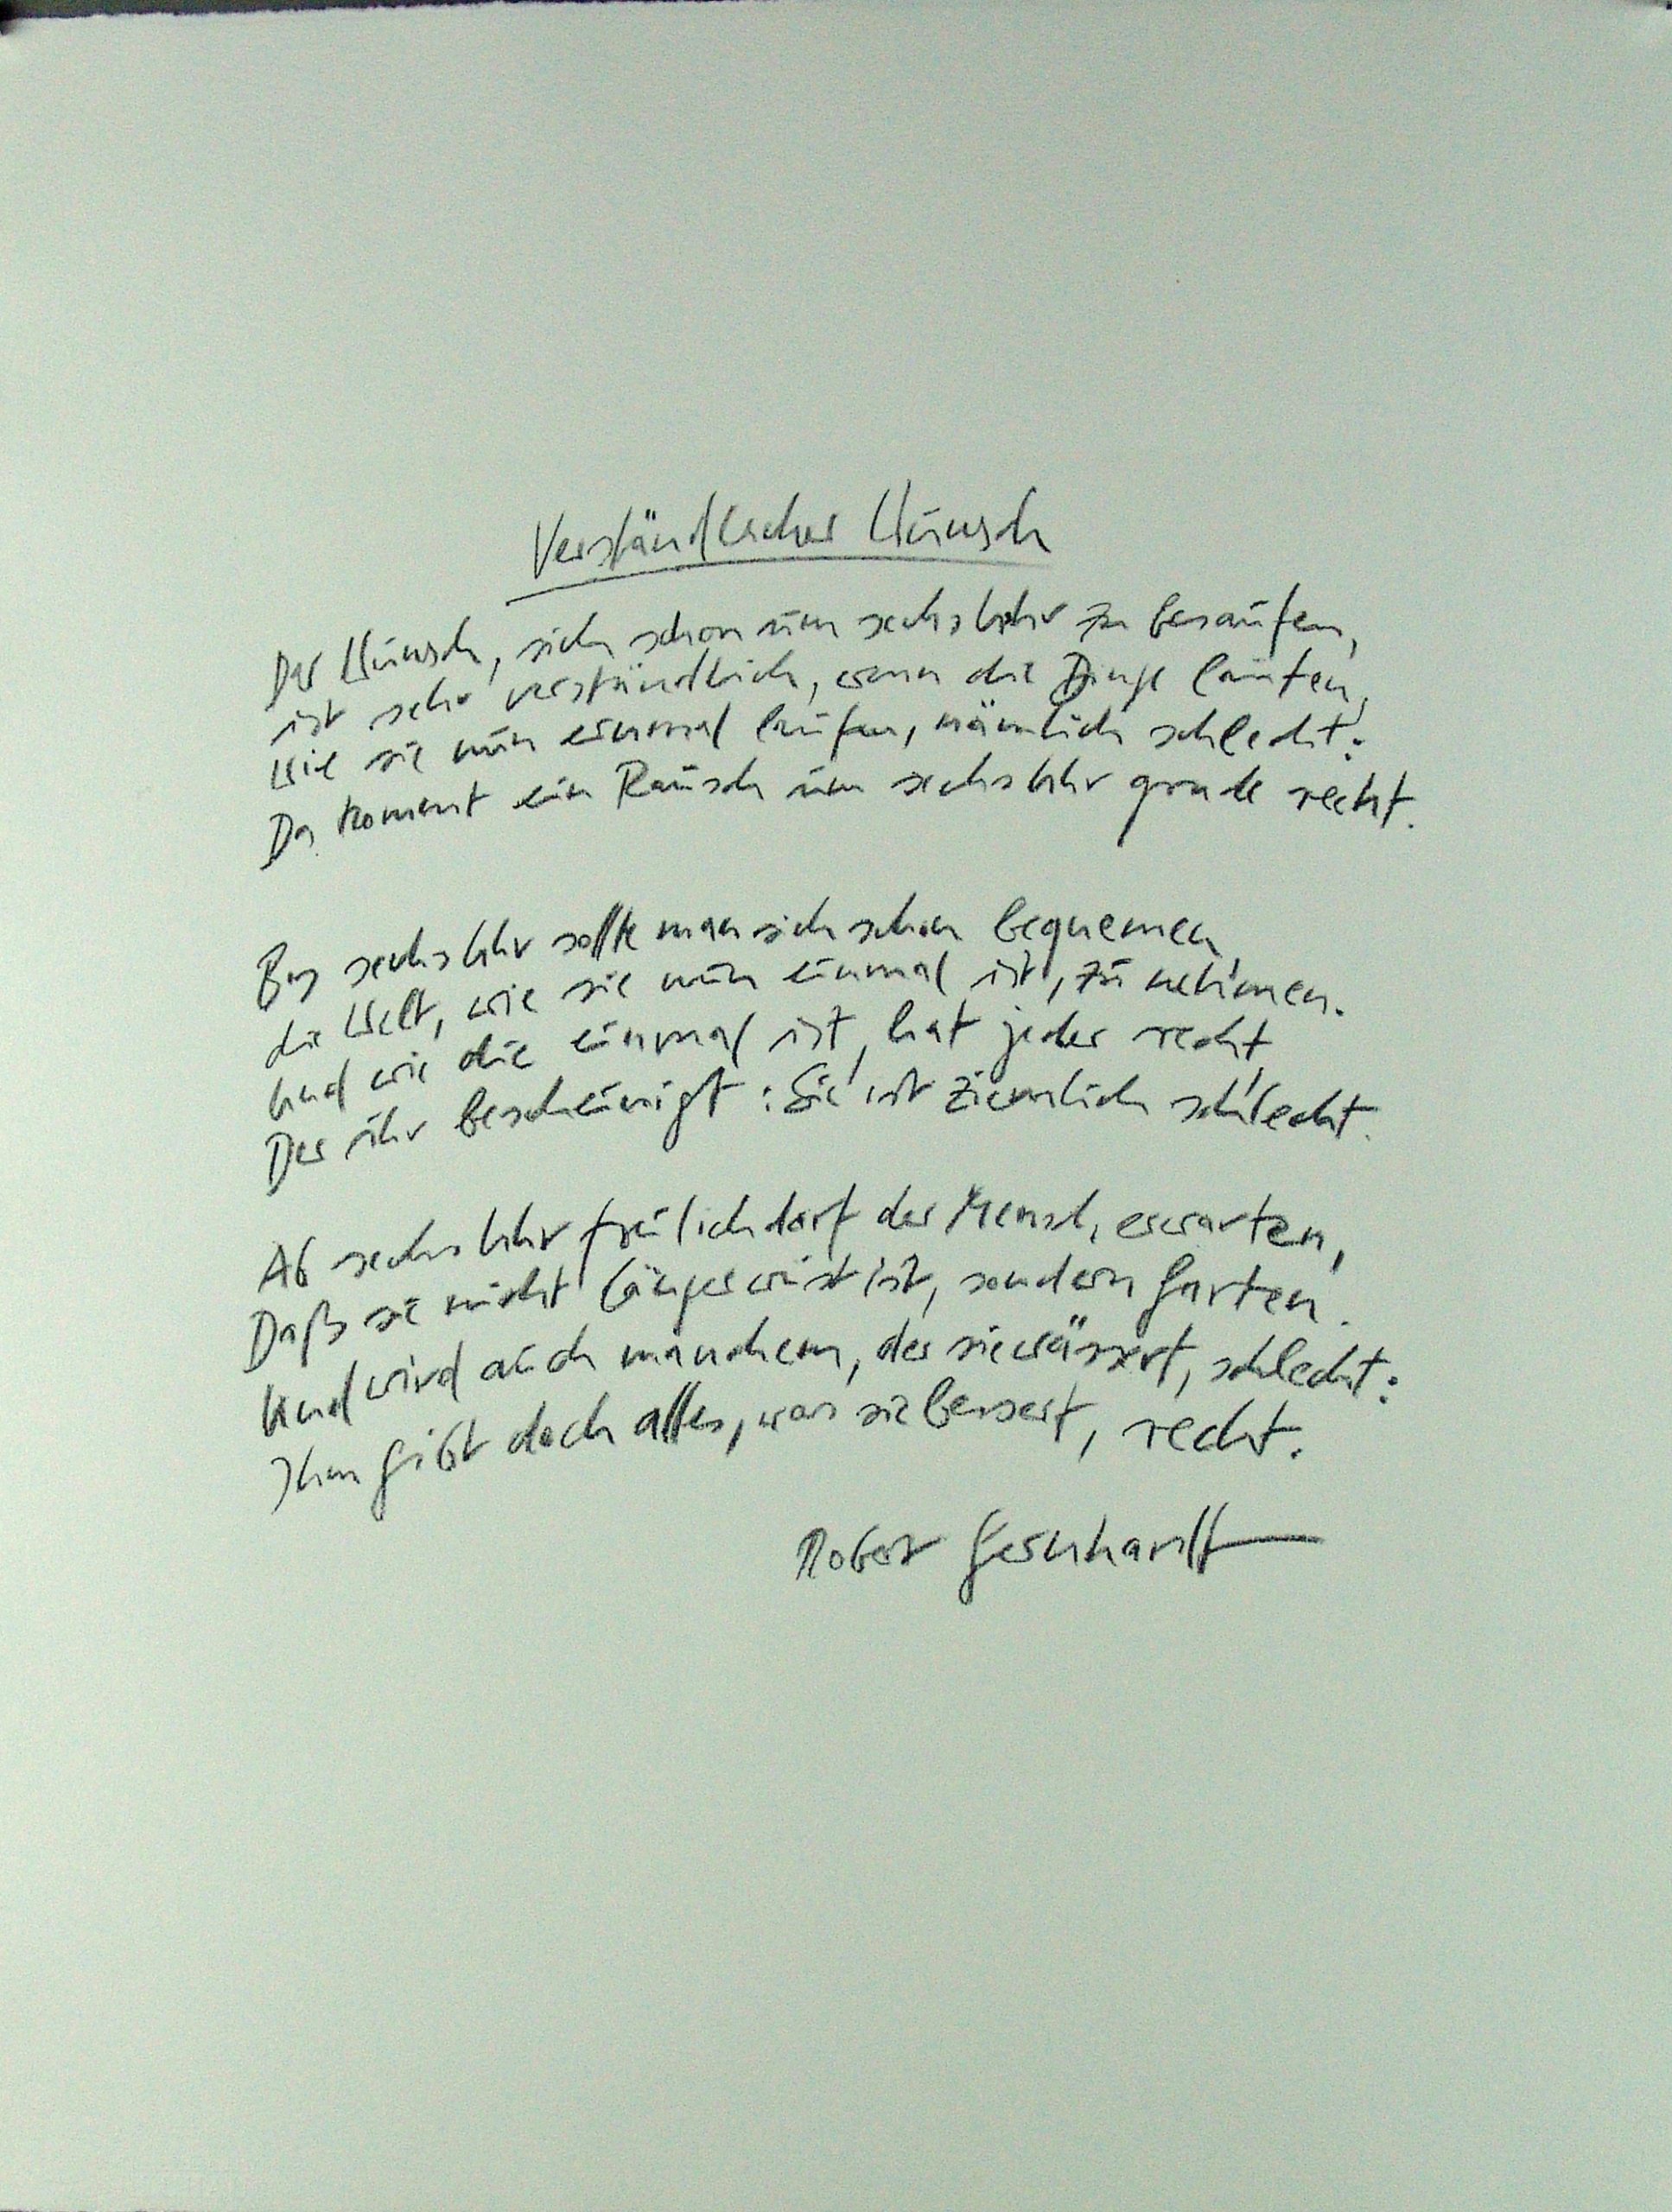 Verständlicher Wunsch
Der Wunsch, sich schon um sechs Uhr zu besaufen,
ist sehr verständlich, wenn die Dinge laufen,
wie sie nun einmal laufen, nämlich schlecht:
Da kommt ein Rausch um sechs Uhr grade recht.
Bis sechs Uhr sollte man sich schon bequemen,
die Welt, wie sie nun einmal ist, zu nehmen.
Und wie die einmal ist, hat jeder recht,
Der ihr bescheinigt: Sie ist ziemlich schlecht.
Ab sechs Uhr freilich darf der Mensch erwarten,
Daß sie nicht länger wüst ist, sondern Garten.
Und wird auch manchem, der sie wässert, schlecht:
Ihm gibt doch alles, was sie bessert, recht.
Robert Gernhardt